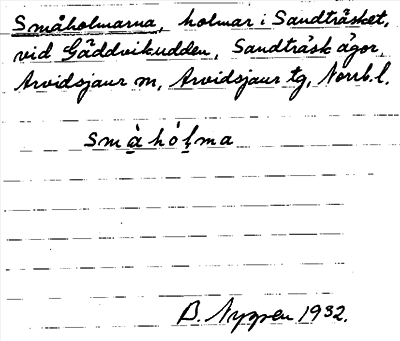 Småholmarna, holmar i Sandträsket,
vid Gäddvikudden, Sandträsk ägor,
Arvidsjaur sn, Arvidsjaur tg, Norrb. l.
småhólma
B. Nygren 1932.